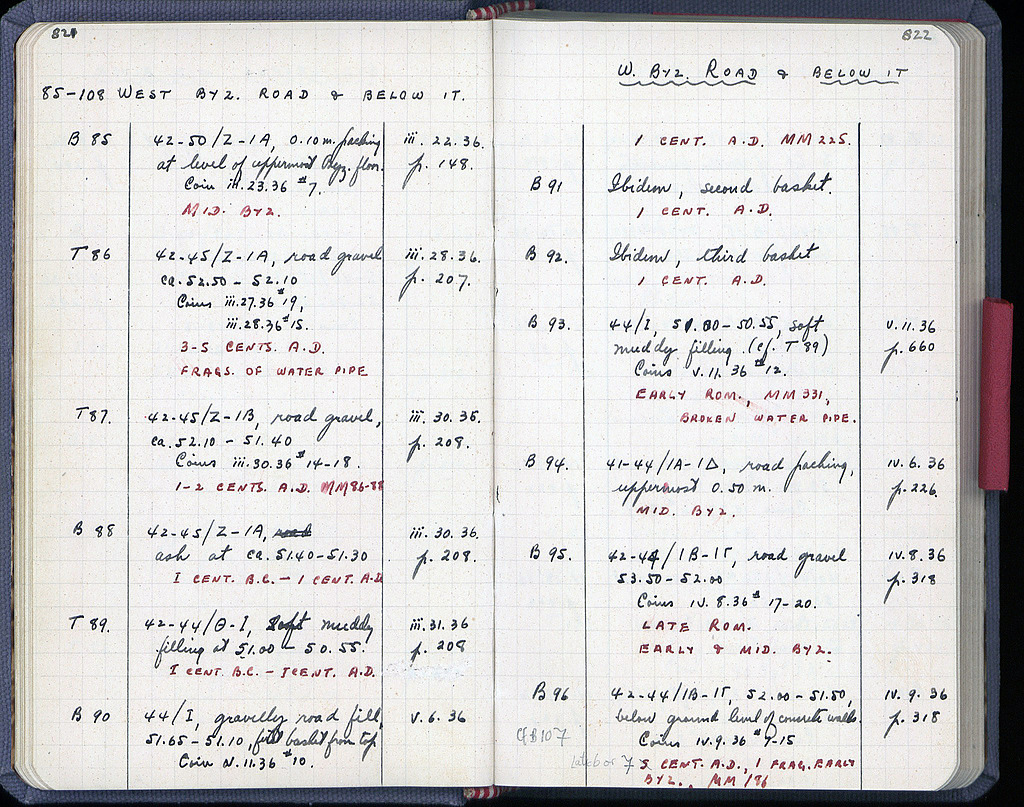 821
85-108 WEST BYZ. ROAD & BELOW IT.
B 85 42-50/Z-1A, 0.10 m. packing iii. 22.36.
at level of uppermost Byz. floor. p. 148.
Coin iii.23.36 #7.
MID. BYZ.
T 86 42-45/Z-1A, road gravel iii. 28.36.
ca. 52.50 - 52.10 p. 207.
Coins iii.27.36 #19,
iii.28.36 #15.
3-5 CENTS. A.D.
FRAGS. OF WATER PIPE
T 87. 42-45/Z-1B, road gravel, iii. 30.36.
ca. 52.10 - 51.40 p. 208.
Coins iii.30.36 #14-18.
1-2 CENTS. A.D. MM86-88
B 88 42-45/Z-1A, iii. 30.36.
ash at ca. 51.40-51.30 p. 208.
I CENT. B.C. - 1 CENT. A.D.
T 89. 42-44/Θ-I, soft muddy iii.31.36
filling at 51.00 - 50.55. p. 209
I CENT. B.C. - I CENT. A.D.
B 90 44/I, gravelly road fill, v. 6. 36
51.65-51.10, first basket from top
Coin v.11.36 #10.
822
W. BYZ. ROAD & BELOW IT
1 CENT. A.D. MM 225.
B 91 Ibidem, second basket.
1 CENT. A.D.
B 92. Ibidem, third basket
1 CENT. A.D.
B 93. 44/I, 51.00-50.55, soft v.11.36
muddy filling. (cf. T 89) p. 660
Coins v.11.36 #12.
EARLY ROM., MM 331,
BROKEN WATER PIPE.
B 94. 41-44/1A-1Δ, road packing, iv. 6. 36
uppermost 0.50 m. p. 226.
MID. BYZ.
B 95. 42-44/1B-1Γ, road gravel iv. 8.36
53.50-52.00 p. 318
Coins iv. 8.36 # 17-20.
LATE ROM.
EARLY & MID. BYZ.
B 96 42-44/1B-1Γ, 52.00-51.50, iv. 9. 36
below ground level of concrete walls. p. 318
Coins iv.9.36 # 9-15
cf B107
late 6 or 7 5 CENT. A.D., 1 FRAG. EARLY
BYZ., MM 186